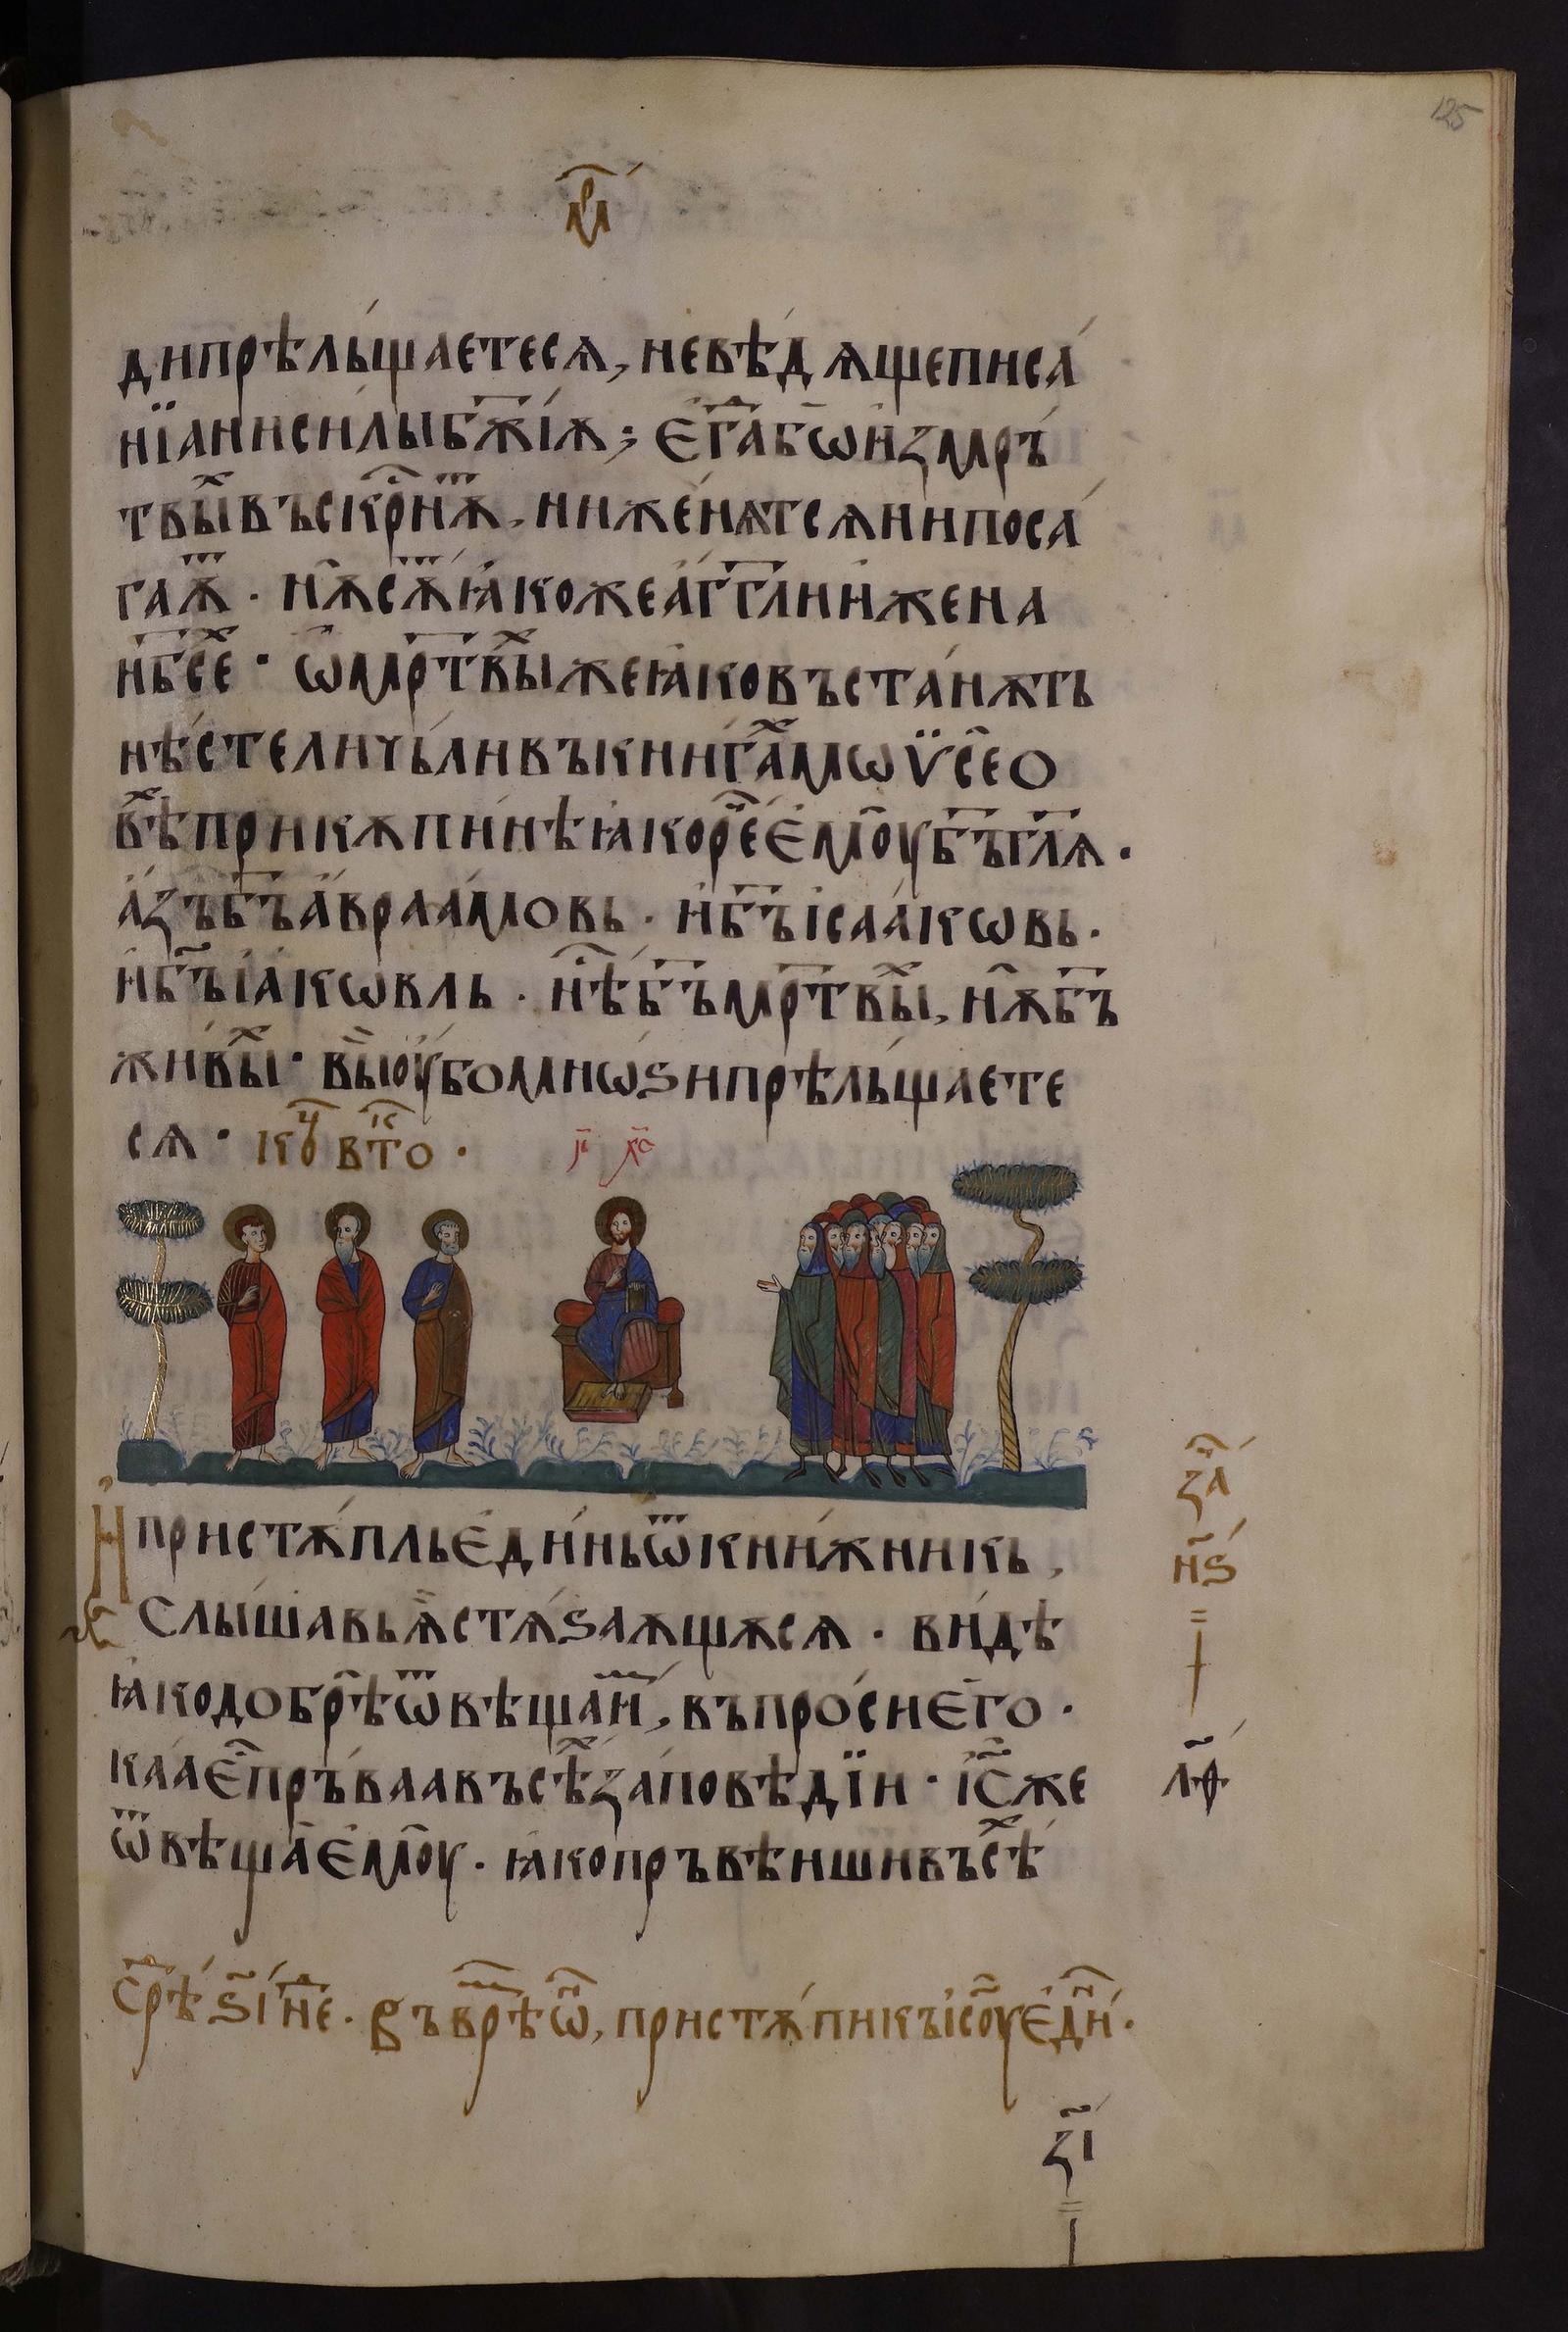 125
м҃р
дипрѣльщаетесѧ, невѣдѧщеписа́
нїанисилыбж҃їѧ; Єгдабѡизмръ
твыⷯвъскрⷭ҇нѫⷮ, ниженѧтсѧнипоса́
гаѫⷮ· нѫ҇сѫⷮꙗкожеаг҃глиижена
нб҃сеⷯ· ѡмр҃твыⷯжеꙗковъстанѫть
нѣстеличьливъкнигаⷯмѡѵ̈сео
вѣⷯприкѫпинѣꙗкореⷱ҇емоуб҃ъгл҃ѧ·
а́зъб҃ъавраамовь· иб҃ъісаакѡвь·
иб҃ъіакѡвль· нѣⷭ҇б҃ъмр҃твыⷯ, нѫб҃ъ
живыⷯ· выоубомнѡѕипрѣльщаете
сѧ· коⷰ҇ втоⷦ·
і҃с х҃с
Ипристѫпльединьѿкнижникь,
Слышавьѧ̀стѧѕаѫщѫсѧ· видѣ
ꙗкодобрѣѿвѣщаиⷨ, въпросиего·
каꙗеⷭ҇пръваавъсѣⷯзаповѣдїи· іс҃же
ѿвѣщаемоу· ꙗкопръвѣишивъсѣⷯ
за҇
н҃ѕ
л҃ѳ
срѣⷣ ѕ҃і неⷣ· Въврѣⷨѡⷩ, пристѫпикъіс҃оуедиⷩ·
з҃і